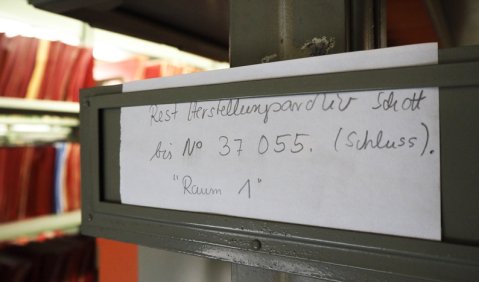 Rest Herstellungsarchiv Schott
bis No 37 055. (Schluss).
"Raum 1"